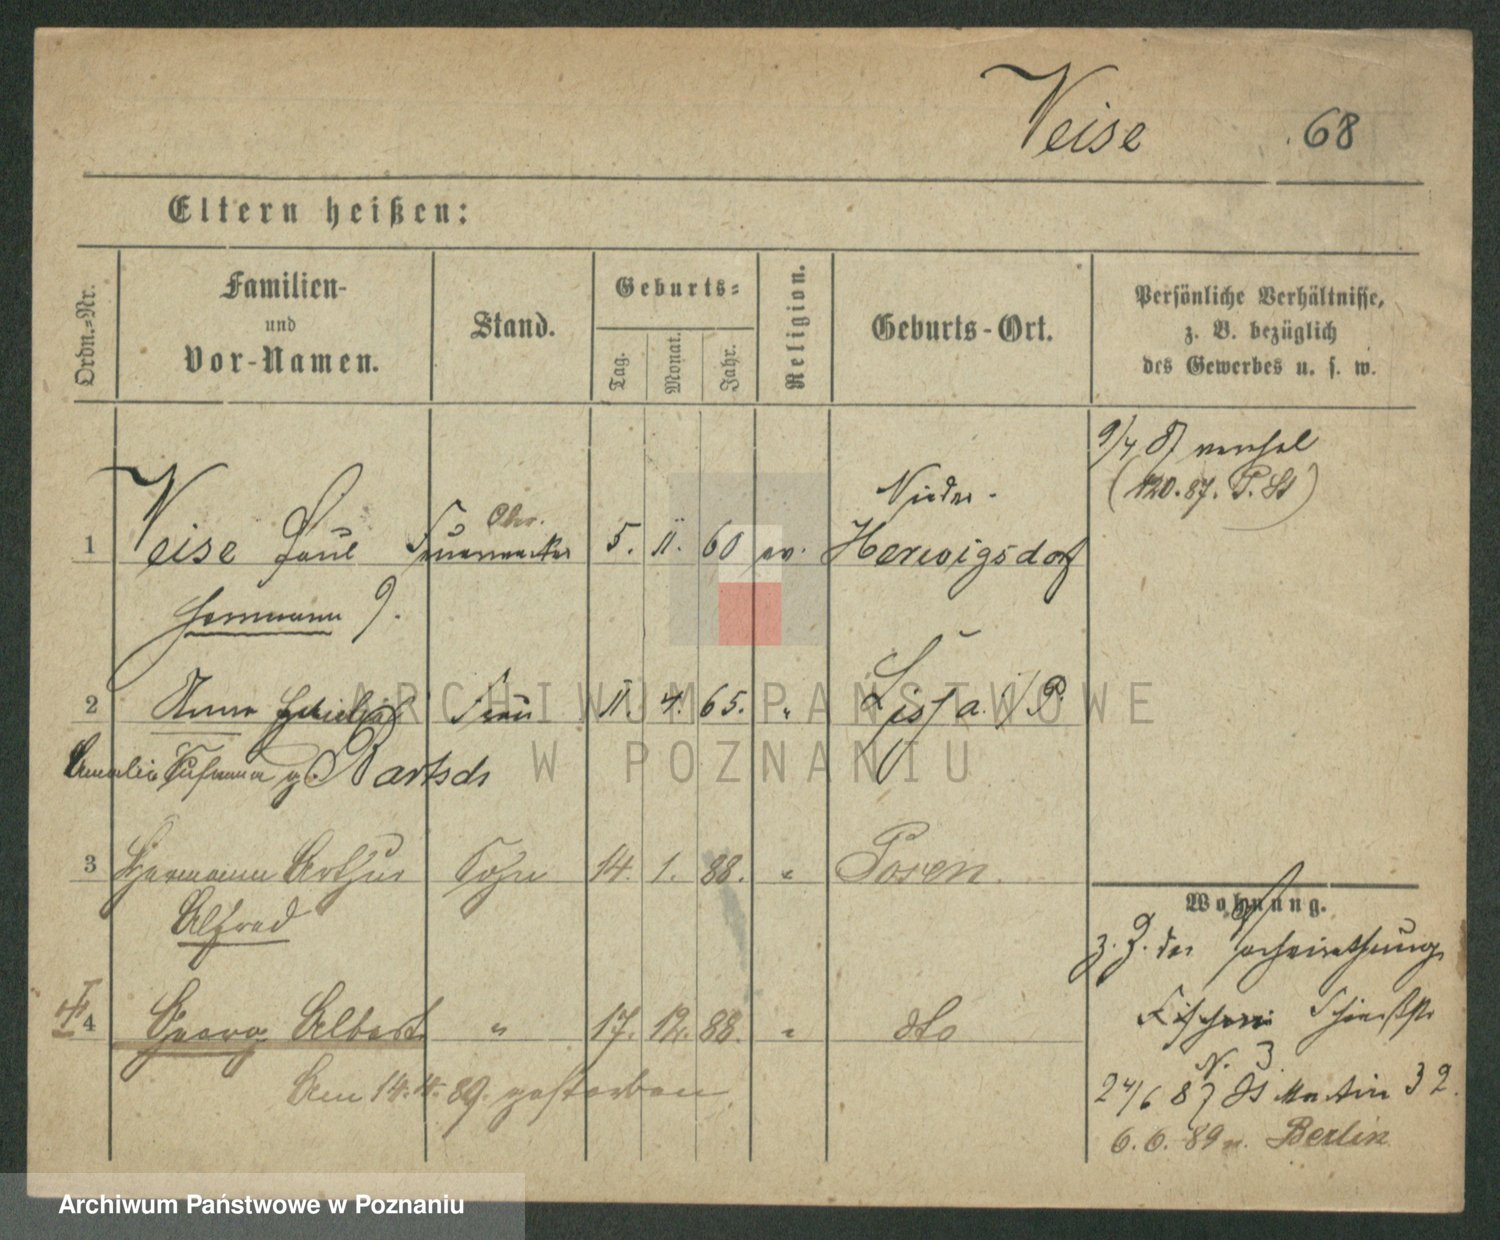 Veise 68
Eltern heißen:
Ordn.-Nr.
Familien-
und
Vor-Namen.
Stand.
Geburts-
Tag.
Monat.
Jahr.
Religion.
Geburts-Ort.
Persönliche Verhältnisse,
z. B. bezüglich
des Gewerbes u. s. w.
9/4 87 verehel
(120.87. P. St)
Nieder-
Ober.
1 Veise Paul Feuerwerker 5. 11. 60 ev. Herwigsdorf
Hermann G.
2 Anna Frau 11. 4. 65. " Lissa i/P.
Amalie Susanna g. Bartsch
3 Hermann Arthur Sohn 14. 1. 88. " Posen.
Alfred
4 Georg Albert " 17. 12. 88. " dto
Am 14.4.89. gestorben
Wohnung.
z. Z. der Verheirathung
Fischerei
N. 3.
24/6 87 St Martin 32.
6.6.89 n. Berlin
ARCHIWUM PAŃSTWOWE
W POZNANIU
Archiwum Państwowe w Poznaniu